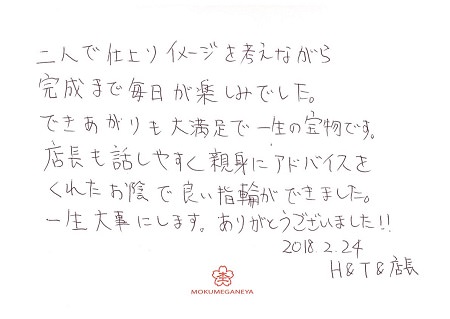 二人で仕上りイメージを考えながら
完成まで毎日が楽しみでした。
できあがりも大満足で一生の宝物です。
店長も話しやすく親身にアドバイスを
くれたお陰で良い指輪ができました。
一生大事にします。ありがとうございました!!
2018.2.24
H&T&店長
MOKUMEGANEYA